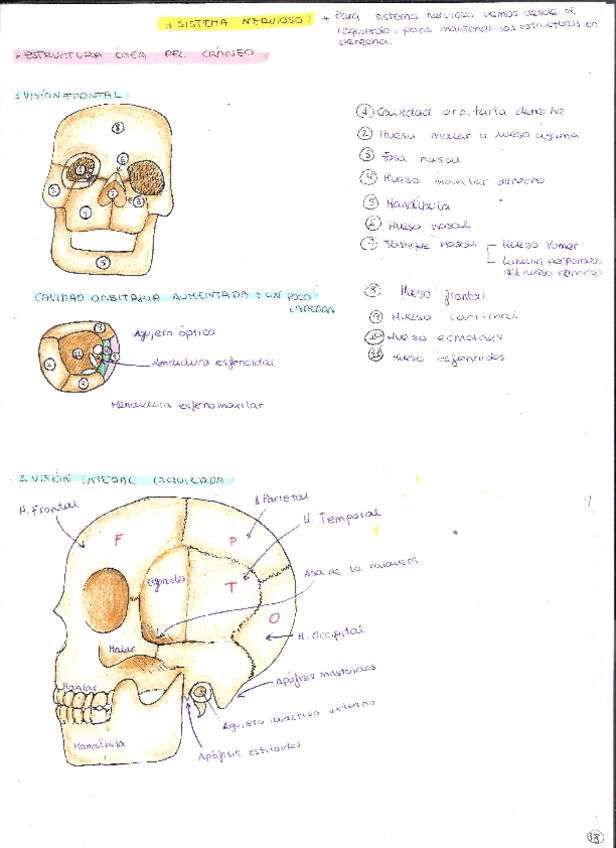 1. SISTEMA NERVIOSO:
→ Para sistema nervioso vemos desde el
izquierdo, para mantener las estructuras en
derecha.
• ESTRUCTURA ÓSEA DEL CRÁNEO
1. VISIÓN FRONTAL:
① Cavidad orbitaria derecha
② Hueso malar o hueso cigoma
③ Fosa nasal
④ Hueso maxilar derecho
⑤ Mandíbula
⑥ Hueso nasal
⑦ Tabique nasal
Hueso Vomer
Lámina perpendic
del hueso etmoides
⑧ Hueso frontal
⑨ Hueso lacrimal
⑩ Hueso etmoides
⑪ Hueso esfenoides
CAVIDAD ORBITARIA AUMENTADA: UN POCO
LADEADA
Agujero óptico
Hendidura esfenoidal
Hendidura esfenomaxilar
2. VISIÓN LATERAL IZQUIERDA
H. Frontal
H. Parietal
H. Temporal
F
P
Esfenoides
T
Asa de la calavera
O
H. Occipital
Malar
Apófisis mastoides
Maxilar
Agujero auditivo externo
Mandíbula
Apófisis estiloides